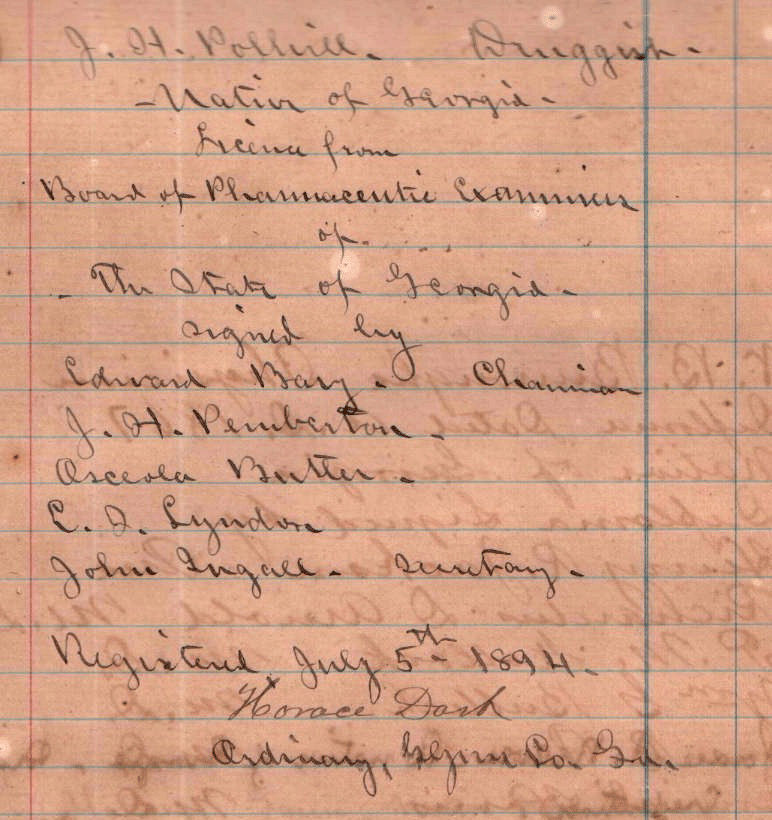 J. H. Polhill. Druggist.
- Native of Georgia -
License from
Board of Pharmaceutic Examiners
of
- The State of Georgia -
signed by
Edward Barry. Chairman
J. H. Pemberton.
Osceola Butler.
E. S. Lyndon
John Ingall. Secretary.
Registered July 5th 1894.
Horace Dart
Ordinary, Glynn Co. Ga.